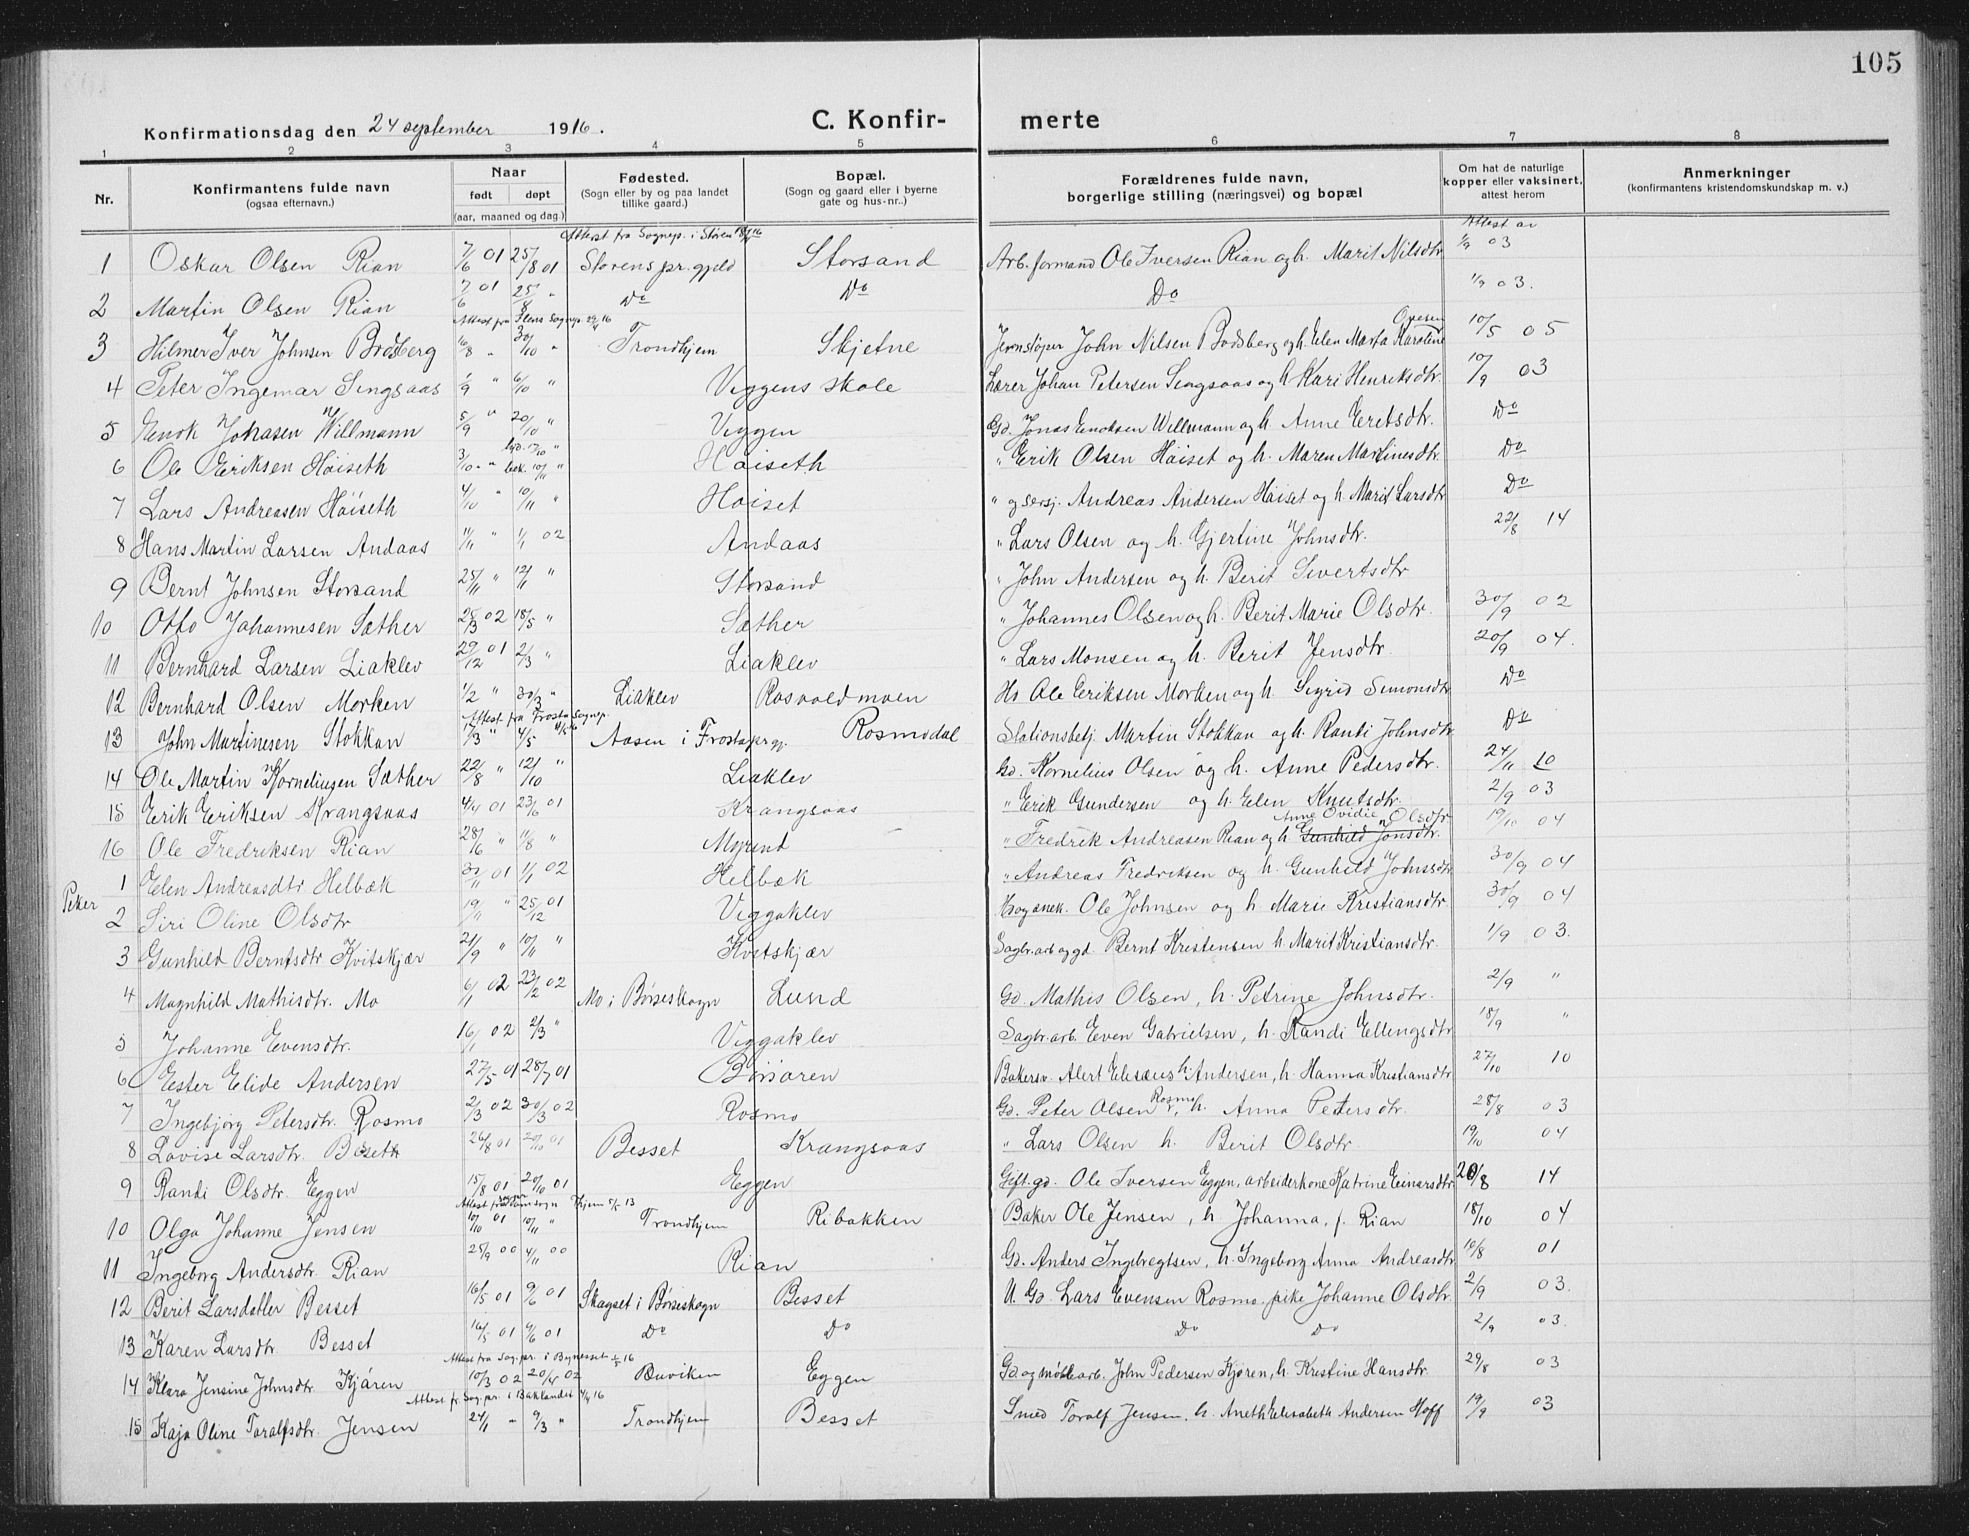 105
Konfirmationsdag den 24 september 1916. C. Konfir- merte
1 2 3 4 5 6 7 8
Nr. Konfirmantens fulde navn (ogsaa efternavn.) Naar født døpt (aar, maaned og dag.) Fødested. (Sogn eller by og paa landet tillike gaard.) Bopæl. (Sogn og gaard eller i byerne gate og hus-nr..) Forældrenes fulde navn, borgerlige stilling (næringsvei) og bopæl Om hat de naturlige kopper eller vaksinert, attest herom Anmerkninger (konfirmantens kristendomskundskap m. v.)
Attest fra Sognepr. i Støren Attest av
1 Oskar Olsen Rian 7/6 01 25/8 01 Størens pr.gjeld Storsand Arb. formand Ole Iversen Rian og h. Marit Nilsdtr 1/9 03
2 Martin Olsen Rian 7/6 01 25/8 " Do Do Do 1/9 03.
Attest fra Ilens Sognep. 29/4 16
3 Hilmer Iver Johnsen Brodsberg 16/8 " 30/10 " Trondhjem Skjetne Jernstøper John Nilsen Bodsberg og h. Elen Marta Karoline Ovesen 10/5 05
4 Peter Ingemar Singsaas 1/9 " 6/10 " Viggens skole Lærer Johan Petersen Singsaas og h Kari Henriksdtr. 10/9 03
5 Enok Johasen Willmann 5/9 " 20/10 " Viggen Gd. Jonas Enoksen Willmann og h. Anne Eeritsdtr. Do
6 Ole Eriksen Höiseth 3/10 " hjd. 17/10 " bek. 10/11 " Höiseth " Erik Olsen Höiset og h. Maren Martinesdtr. Do
7 Lars Andreasen Höiseth 4/10 " 10/11 " Höiset " og sersj. Andreas Andersen Höiset og h. Marit Larsdtr Do
8 Hans Martin Larsen Andaas 11/11 " 1/1 02 Andaas " Lars Olsen og h. Gjertine Johnsdtr. 22/8 14
9 Bernt Johnsen Storsand 25/11 " 12/1 " Storsand " John Andersen og h. Berit Sivertsdtr
10 Otto Johannesen Sæther 25/3 02 18/5 " Sæther " Johannes Olsen og h. Berit Marie Olsdtr. 30/9 02
11 Bernhard Larsen Liaklev 29/12 01 2/3 " Liaklev " Lars Monsen og h. Berit Jensdtr. 20/9 04.
12 Bernhard Olsen Morken 1/2 " 30/3 " Liaklev Rosvoldmoen Hs Ole Eriksen Morken og h. Sigrid Simonsdtr Do
Attest fra Frosta Sognep.
13 John Martinesen Stokkan 17/3 " 4/5 Aasen i Frosta prgj. Rosmodal Stationsbetj. Martin Stokkan og h. Randi Johnsdtr Do
14 Ole Martin Korneliusen Sæther 22/8 " 12/10 " Liaklev Gd. Kornelius Olsen og h. Anne Pedersdtr. 24/11 10
15 Erik Eriksen Krangsaas 4/4 01 23/6 01 Krangsaas " Erik Gundersen og h. Elen Knutsdtr. 2/9 03
16 Ole Fredriksen Rian 28/6 " 11/8 " Myrend " Fredrik Andreasen Rian og h Gunhild Jonsdtr. Anne Ovidie Olsdtr 19/10 04
Piker
1 Elen Andreasdtr Helbæk 30/11 01 1/1 02 Helbæk " Andreas Fredriksen og h. Gunhild Johnsdtr 30/9 04
2 Siri Oline Olsdtr 19/11 " 25/12 01 Viggaklev Ole Johnsen og h. Marie Kristiansdtr 30/9 04
3 Gunhild Berntsdtr Kvitskjær 21/9 " 10/11 " Kvitskjær Sagbr.arb og gd. Bernt Kristensen h. Marit Kristiansdtr. 1/9 03.
4 Magnhild Mathisdtr. Mo 6/1 02 23/2 02 Mo i Børseskogn Lund Gd. Mathis Olsen, h. Petrine Johnsdtr. 2/9 "
5 Johanne Evensdtr. 16/1 02 2/3 " Viggaklev Sagbr.arb. Even Gabrielsen, h. Randi Ellingsdtr 18/9 "
6 Ester Elide Andersen 27/5 01 28/7 01 Börsören Bakersv. Alert Elisæus Andersen, h. Hanna Kristiansdtr 27/10 10
7 Ingebjørg Petersdtr. Rosmo 2/3 02 30/3 02 Rosmo Gd. Peter Olsen Rosmo, h. Anna Petersdtr. 28/8 03
8 Lovise Larsdtr. Beseth 26/8 01 20/10 01 Besset Krangsaas " Lars Olsen h. Berit Olsdtr 19/10 04
9 Randi Olsdtr. Eggen 15/8 01 20/10 01 Eggen Gift. gd. Ole Iversen Eggen, arbeiderkone Katrine Einarsdtr 20/8 14
10 Olga Johanne Jensen 10/10 01 10/11 " Trondhjem Ribakken Baker Ole Jensen, h. Johanna, f. Rian 18/10 04
11 Ingeborg Andersdtr. Rian 25/9 00 4/11 00 Rian Gd. Anders Ingbregtsen, h. Ingeborg Anna Andreasdtr 10/8 01
12 Berit Larsdatter Besset 16/5 01 9/6 01 Skagset i Børseskogn Besset U. Gd. Lars Evensen Rosmo, pike Johanne Olsdtr. 2/9 03.
13 Karen Larsdtr. Besset 16/5 01 9/6 01 Do Do Do Do 2/9 03.
Attest fra Sog.pr. i Bynesset 1/5 16
14 Klara Jensine Johnsdtr Kjören 10/3 02 20/4 02 Buviken Eggen Gd. og møllearb. John Pedersen Kjøren, h. Kristine Hansdtr. 29/8 03
Attest fr. Sog.pr. i Baklandet 4/4 16
15 Kaja Oline Toralfsdtr. Jensen 24/1 " 9/3 " Trondhjem Besset Smed Toralf Jensen, h. Aneth Elisabeth Andersen Hoff 19/9 03